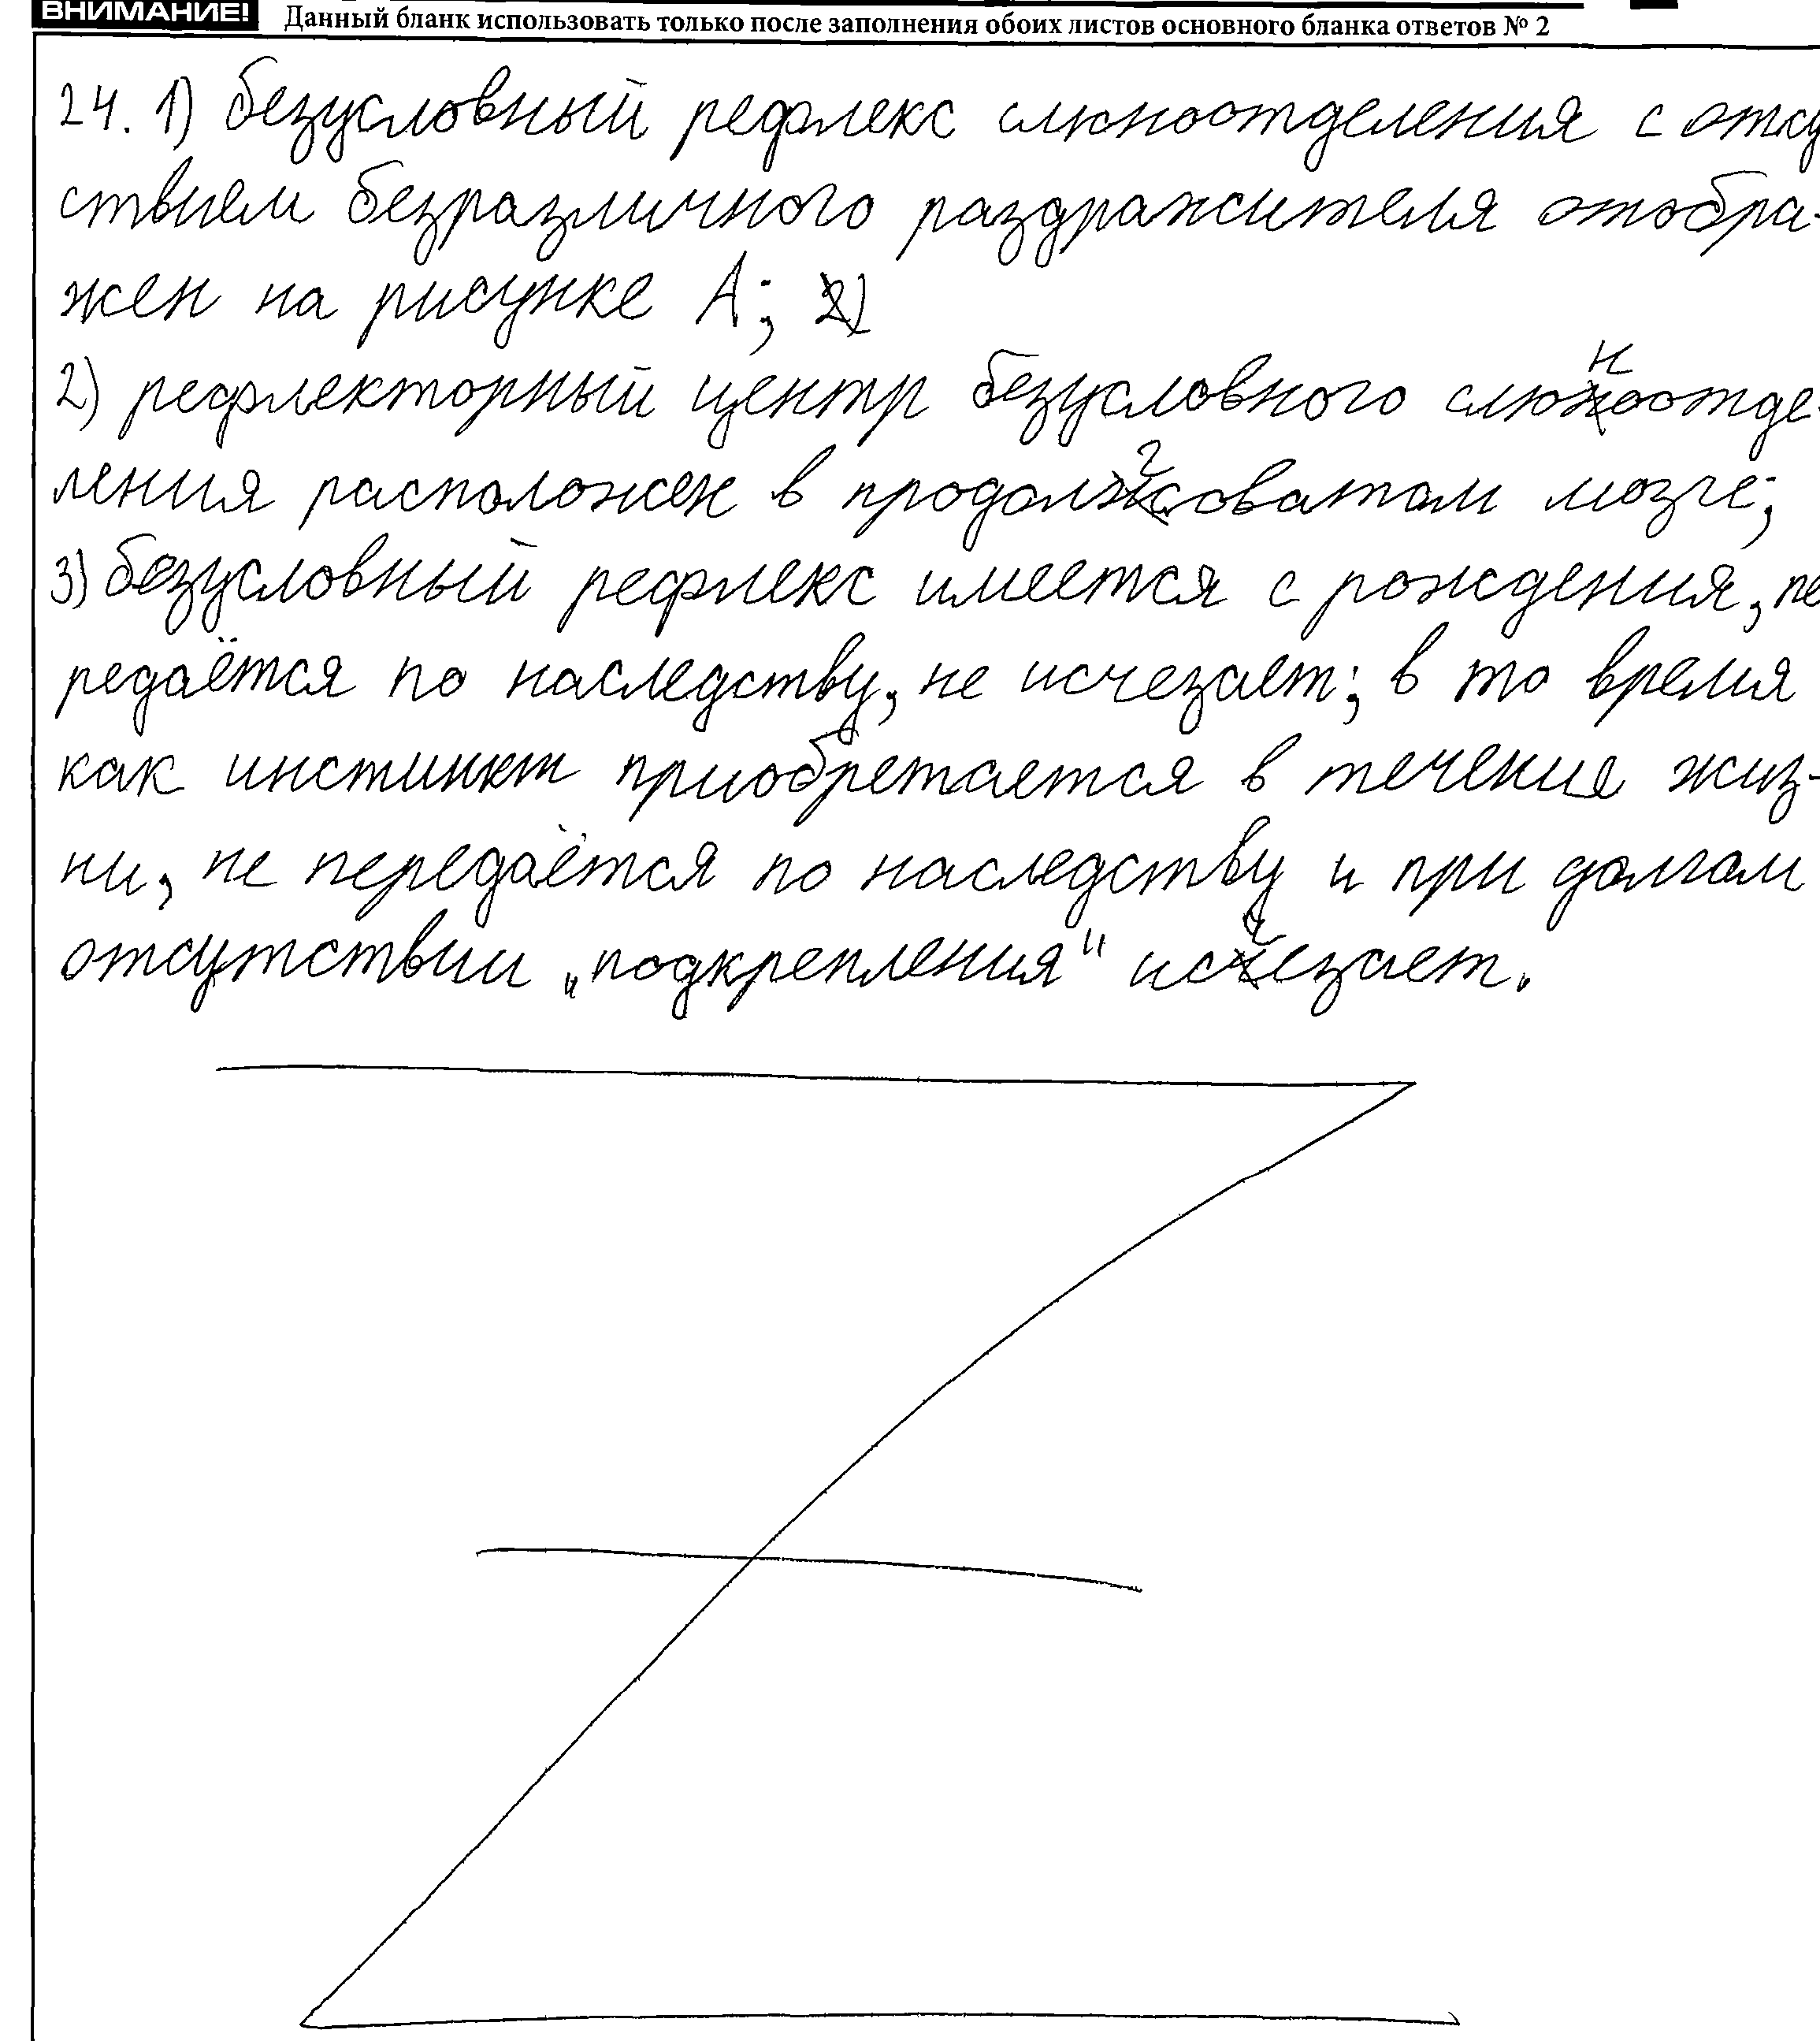 ВНИМАНИЕ! Данный бланк использовать только после заполнения обоих листов основного бланка ответов № 2
24. 1) безусловный рефлекс слюноотделения с отсу
ствием безразличного раздражителя отобра-
жен на рисунке А;
2) рефлекторный центр безусловного слюноотде-
ления расположен в продолговатом мозге;
3) безусловный рефлекс имеется с рождения, пе
редаётся по наследству, не исчезает; в то время
как инстинкт приобретается в течение жиз-
ни, не передаётся по наследству и при долгом
отсутствии „подкрепления" исчезает.